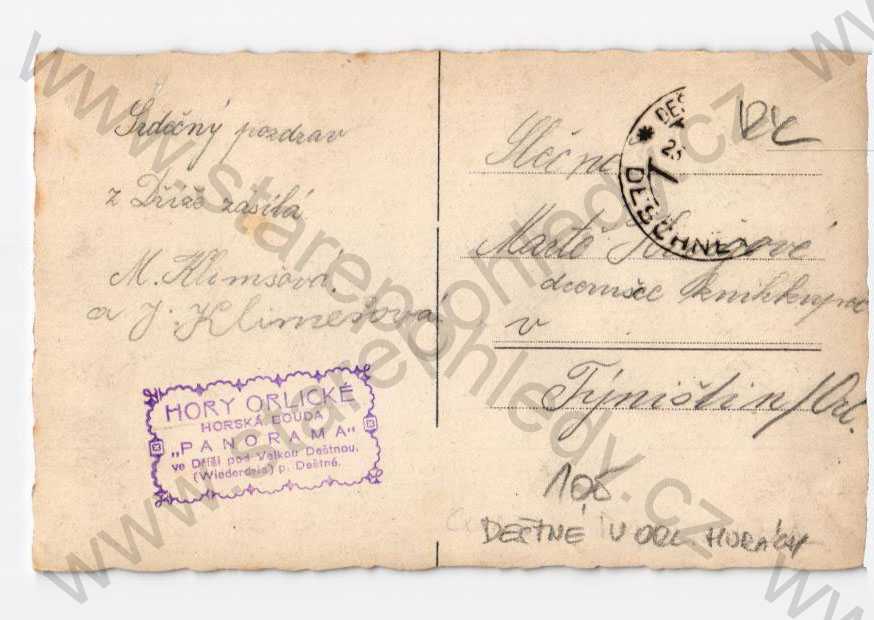 Srdečný pozdrav
z Dříše zasílá
M. Klimšová
a J. Klimešová
HORY ORLICKÉ
HORSKÁ BOUDA
„PANORAMA"
ve Dříši pod Velkou Deštnou,
(Wiederdris) p. Deštné.
Slečna
Marta
v
Týništi n/Orl.
DESCHNEY
DEŠTNÉ V ORL. HORÁCH
www.starepohledy.cz
www.starepohledy.cz